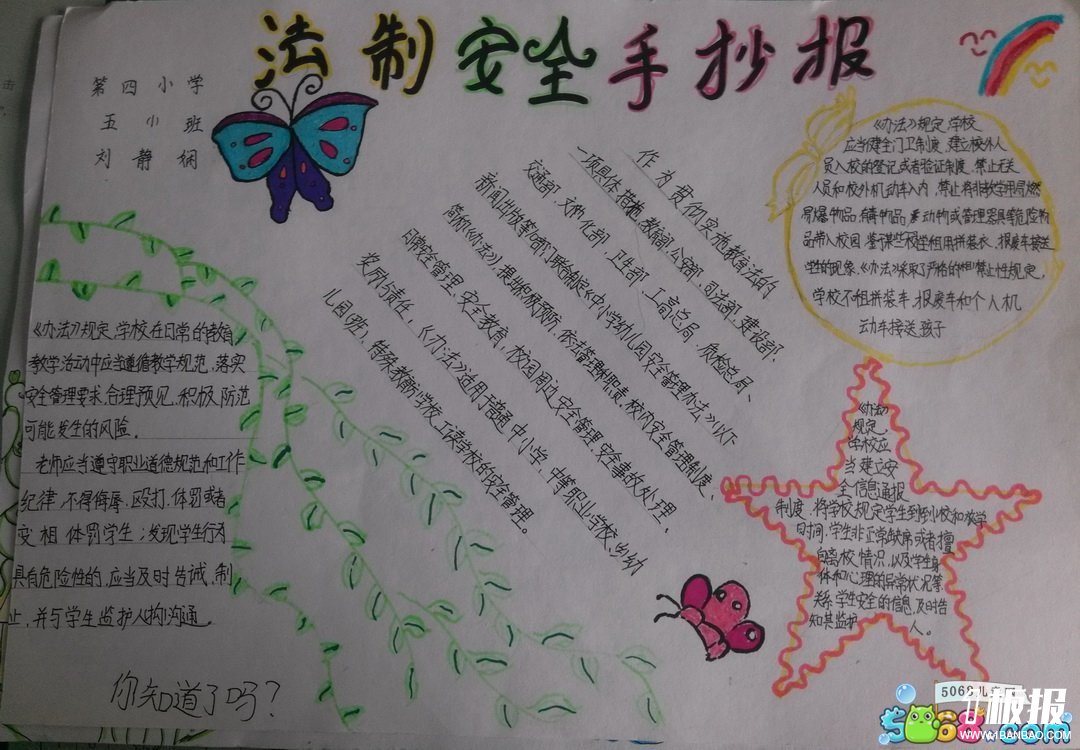 法制安全手抄报
第四小学
五小班
刘静娴
《办法》规定,学校在日常的教育
教学活动中应当遵循教学规范,落实
安全管理要求,合理预见、积极防范
可能发生的风险。
老师应当遵守职业道德规范和工作
纪律,不得侮辱、殴打、体罚或者
变相体罚学生;发现学生行为
具有危险性的,应当及时告诫、制
止,并与学生监护人沟通。
你知道了吗?
作为贯彻实施教育法的
一项具体措施,教育部、公安部、司法部、建设部、
交通部、文化部、卫生部、工商总局、质检总局、
新闻出版等10部门联合制定《中小学幼儿园安全管理办法》(以下
简称《办法》),提出积极预防、依法管理
职责,校内安全管理制度、
日常安全管理、安全教育,校园周边安全管理,安全事故处理,
奖励与责任,《办法》适用于普通中小学、中等职业学校、乡幼
儿园(班)、特殊教育学校、工读学校的安全管理。
《办法》规定,学校
应当健全门卫制度,建立校外人
员入校的登记或者验证制度,禁止无关
人员和校外机动车入内,禁止将非教学用易燃
易爆物品、有毒物品、动物或管理器具等危险物
品带入校园,鉴于某些校学租用拼装衣、报废车接送
学生的现象,《办法》采取了严格的禁止性规定,
学校不租拼装车、报废车和个人机
动车接送孩子
《办法》
规定,
学校应
当建立安
全信息通报
制度,将学校规定学生到校和放学
时间、学生非正常缺席或者擅
自离校情况,以及学生身
体和心理的异常状况等
关系学生安全的信息,及时告
知其监护人。
5068儿童网
5068.com
板报
WWW.1BANBAO.COM